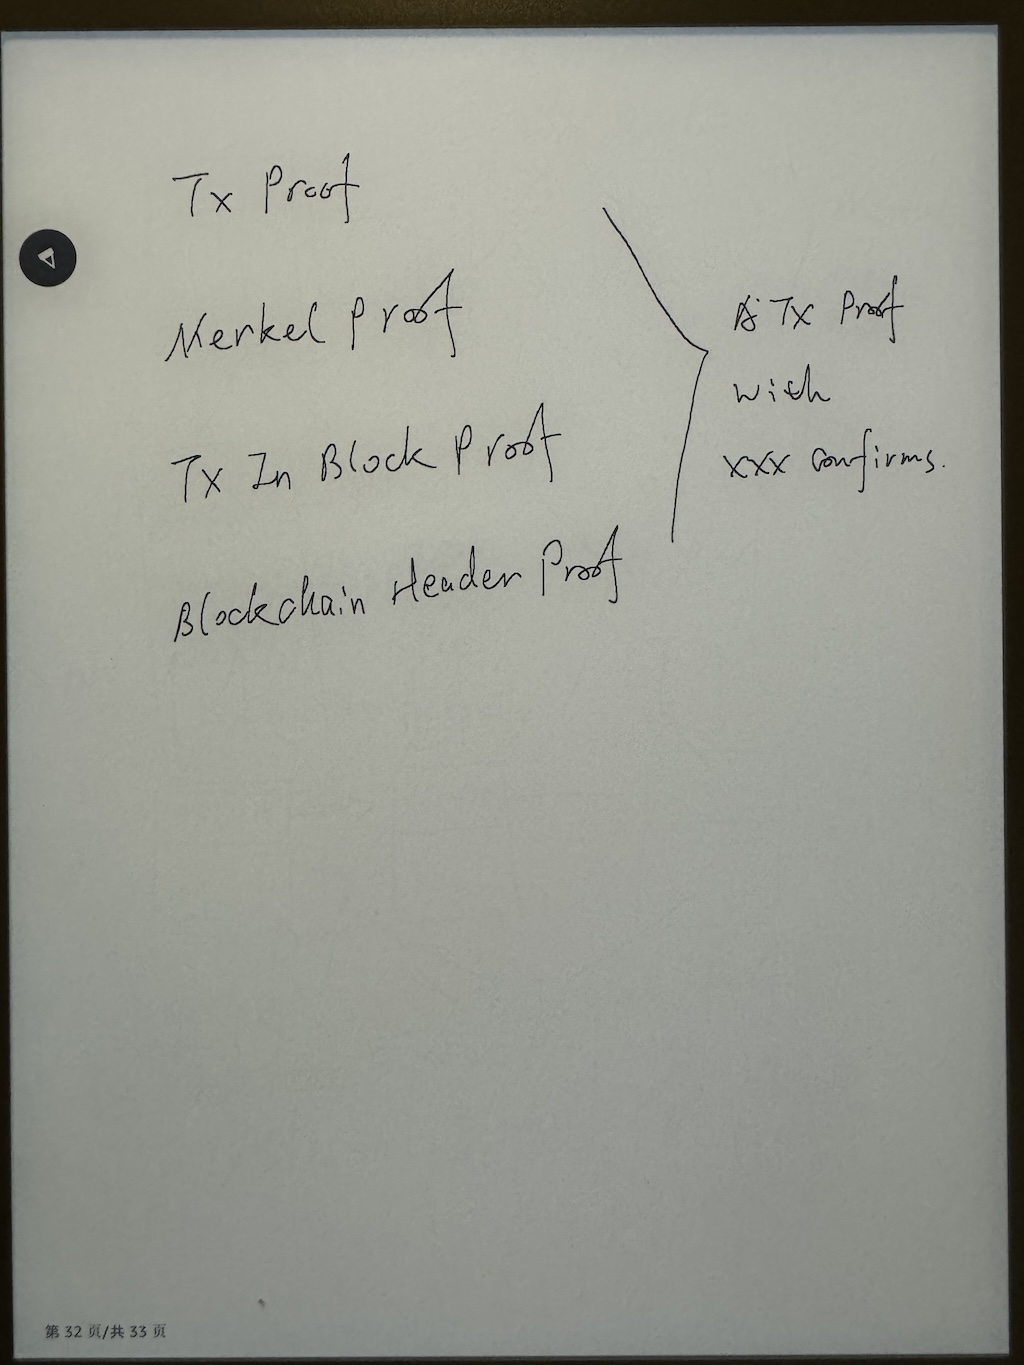 Tx Proof
Merkel Proof
Tx In Block Proof
Blockchain Header Proof
A Tx Proof
with
xxx confirms.
第 32 页/共 33 页